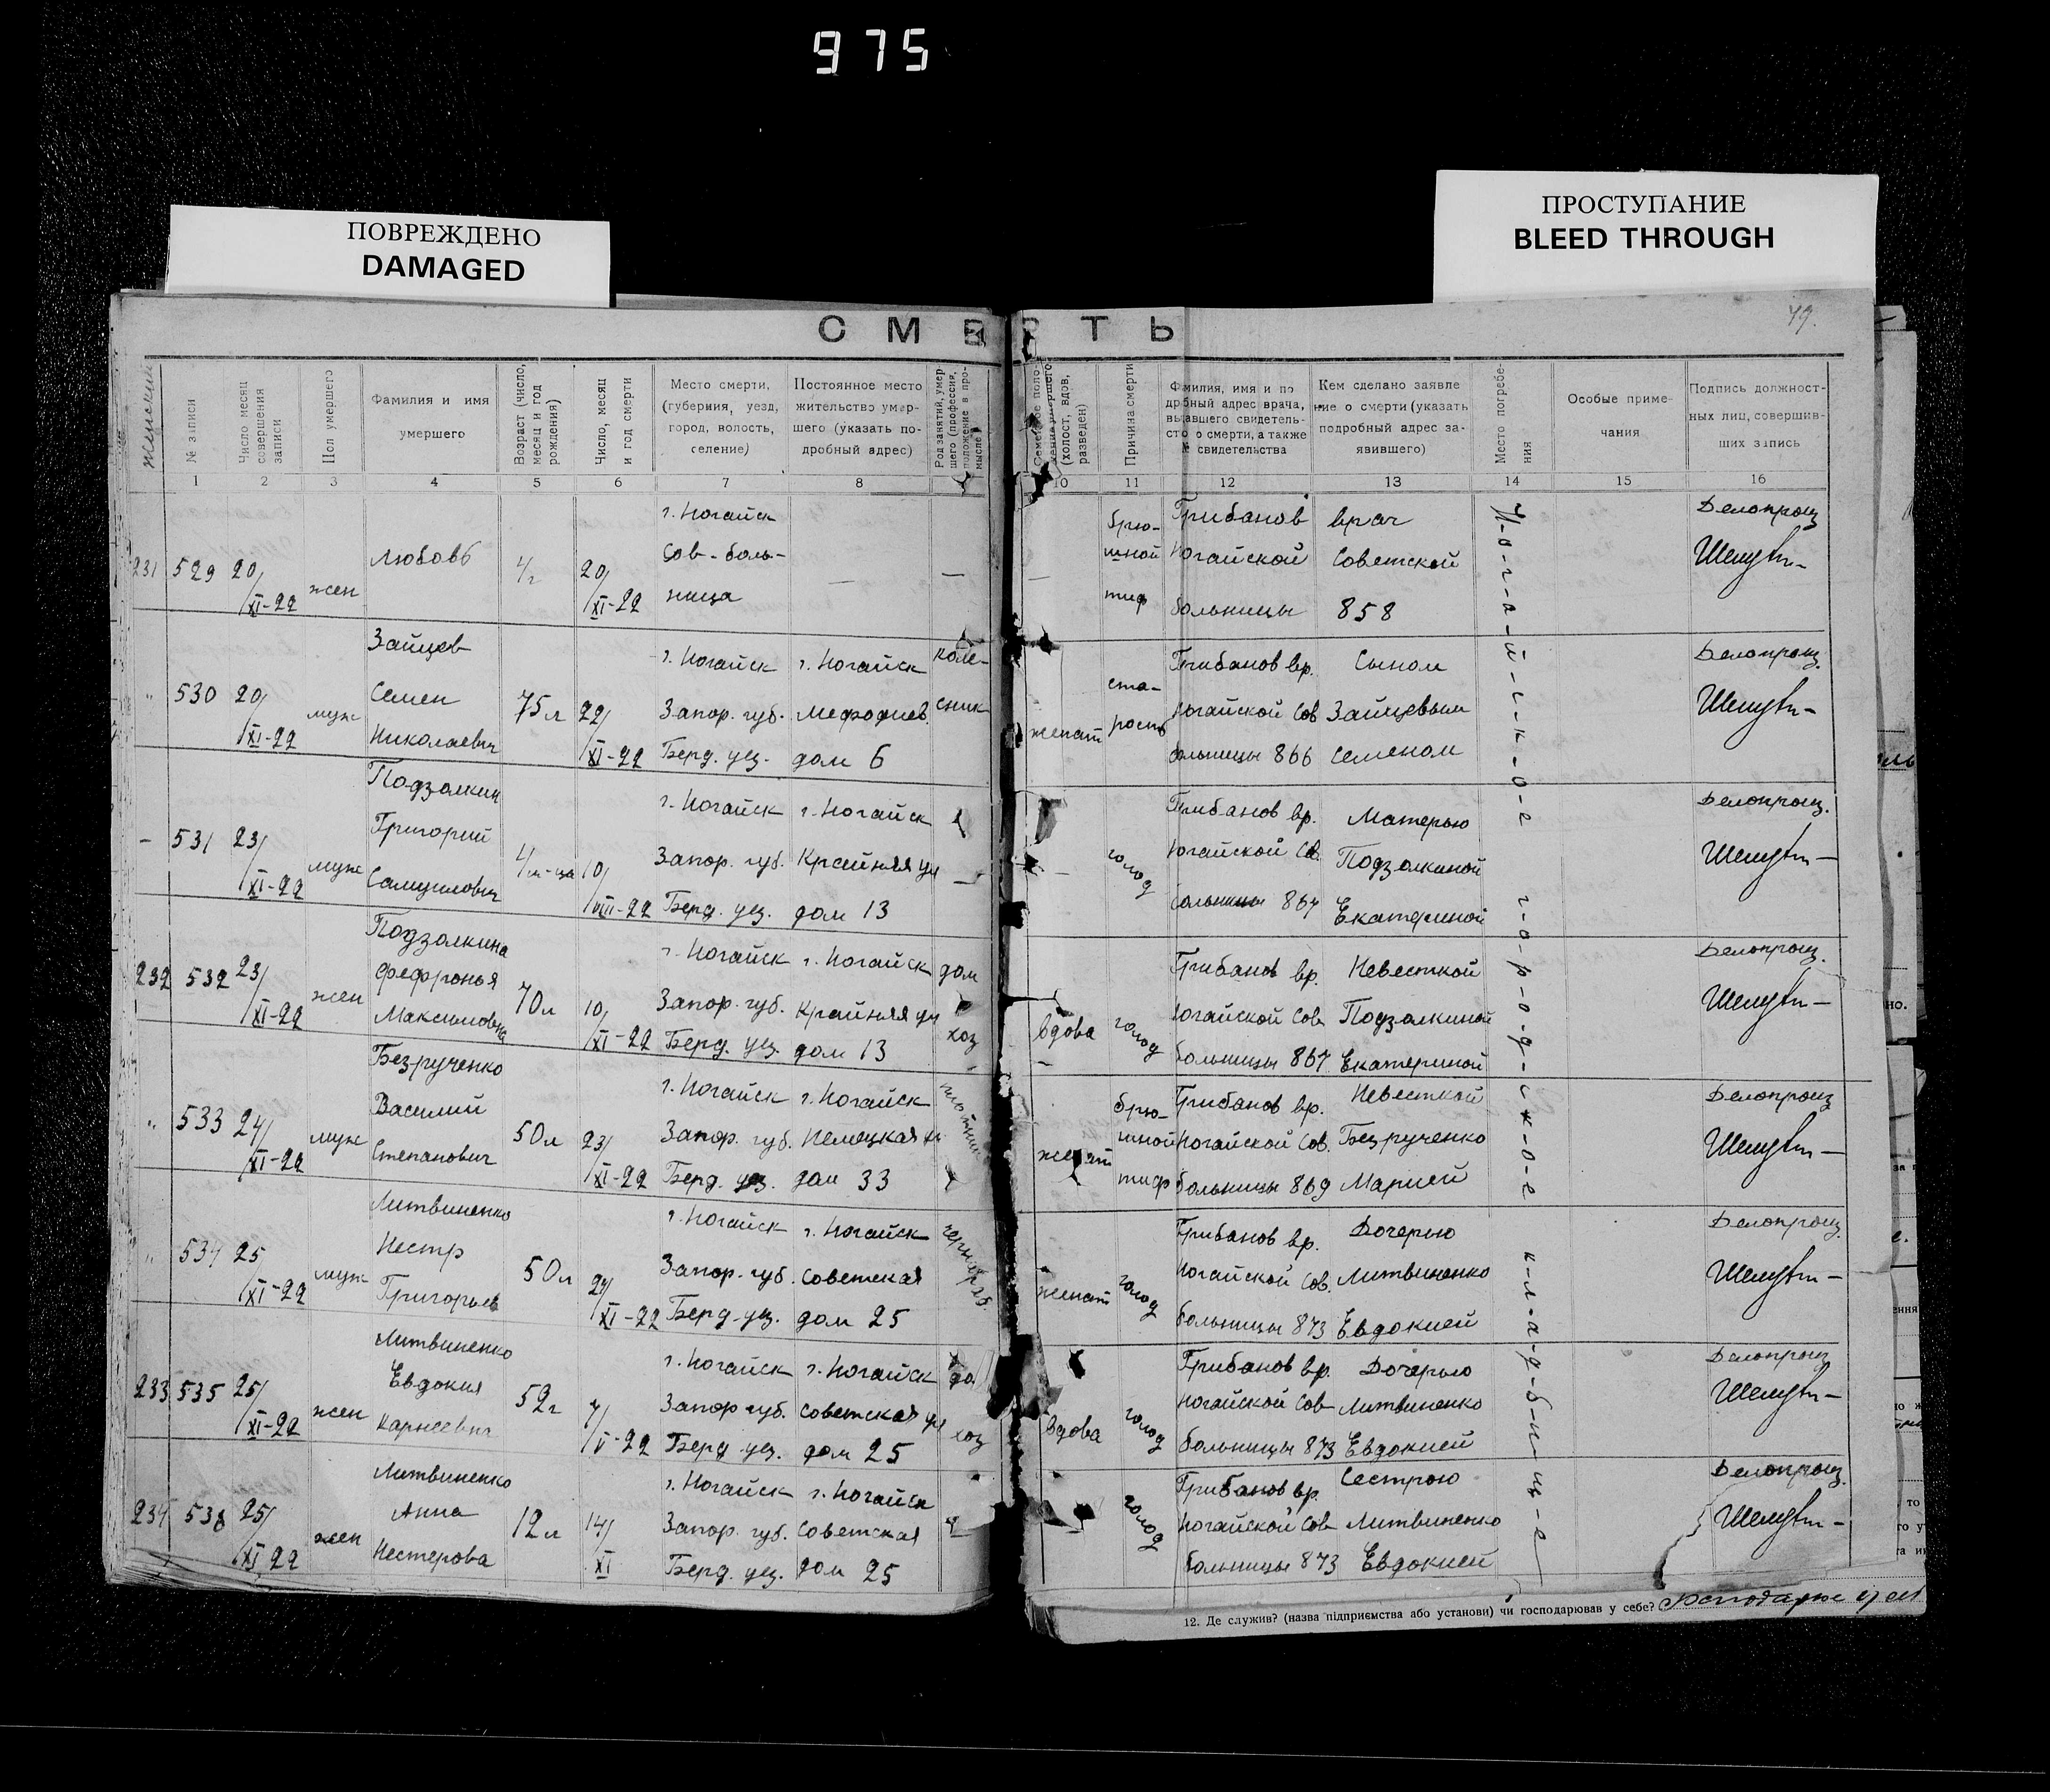 975
ПОВРЕЖДЕНО
DAMAGED
ПРОСТУПАНИЕ
BLEED THROUGH
79.
СМЕРТЬ
женский
№ записи
Число месяц совершения записи
Пол умершего
Фамилия и имя умершего
Возраст (число, месяц и год рождения)
Число, месяц и год смерти
Место смерти, (губерния, уезд, город, волость, селение)
Постоянное место жительство умершего (указать подробный адрес)
Род занятий, умершего (профессия, положение в промысле)
(холост, вдов, разведен)
Причина смерти
Фамилия, имя и подробный адрес врача, выдавшего свидетельство о смерти, а также № свидетельства
Кем сделано заявление о смерти (указать подробный адрес заявившего)
Место погребения
Особые примечания
Подпись должностных лиц, совершивших запись
1 2 3 4 5 6 7 8 10 11 12 13 14 15 16
231 529 20/XI-22 жен Любовь 4/г 20/XI-22 г. Ногайск Сов-больница — — — брюшной тиф Грибанов врач Ногайской Советской больницы 858 Делопроиз
" 530 20/XI-22 муж Зайцев Семен Николаевич 75л 22/XI-22 г. Ногайск Запор. губ. Берд. уез. г. Ногайск Мефодиев. дом 6 колесник женат старость Грибанов вр. Ногайской Сов больницы 866 Сыном Зайцевым Семеном Делопроиз.
- 531 23/XI-22 муж Подзолкин Григорий Самуилович 4/м-ца 10/VIII-22 г. Ногайск Запор. губ. Берд. уез. г. Ногайск Крайняя ул дом 13 — — голод Грибанов вр. Ногайской Сов. больницы 867 Матерью Подзолкиной Екатериной Делопроиз.
232 532 23/XI-22 жен Подзолкина Фефронья Максимовна 70л 10/XI-22 г. Ногайск Запор. губ. Берд. уез. г. Ногайск Крайняя ул дом 13 дом хоз вдова голод Грибанов вр. Ногайской Сов больницы 867 Невесткой Подзолкиной Екатериной Делопроиз.
" 533 24/XI-22 муж Безрученко Василий Степанович 50л 23/XI-22 г. Ногайск Запор. губ. Берд. уез. г. Ногайск Немецкая ул дом 33 плотник женат брюшной тиф Грибанов вр. Ногайской Сов. больницы 869 Невесткой Безрученко Марией Делопроиз
" 534 25/XI-22 муж Литвиненко Нестр Григорьев 50л 24/XI-22 г. Ногайск Запор. губ. Берд. уез. г. Ногайск Советская дом 25 женат голод Грибанов вр. Ногайской Сов. больницы 873 Дочерью Литвиненко Евдокией Делопроиз.
233 535 25/XI-22 жен Литвиненко Евдокия 52г 7/V-22 г. Ногайск Запор губ. Берд уез. г. Ногайск Советская ул дом 25 хоз вдова голод Грибанов вр. Ногайской Сов больницы 873 Дочерью Литвиненко Евдокией Делопроиз
234 536 25/XI 22 жен Литвиненко Анна Нестерова 12л 14/XI г. Ногайск Запор. губ. Берд. уез. г. Ногайск Советская дом 25 голод Грибанов вр. Ногайской Сов больницы 873 Сестрою Литвиненко Евдокией Делопроиз.
Н-о-г-а-й-с-к-о-е г-о-р-о-д-с-к-о-е к-л-а-д-б-и-щ-е
12. Де служив? (назва підприємства або установи) чи господарював у себе?